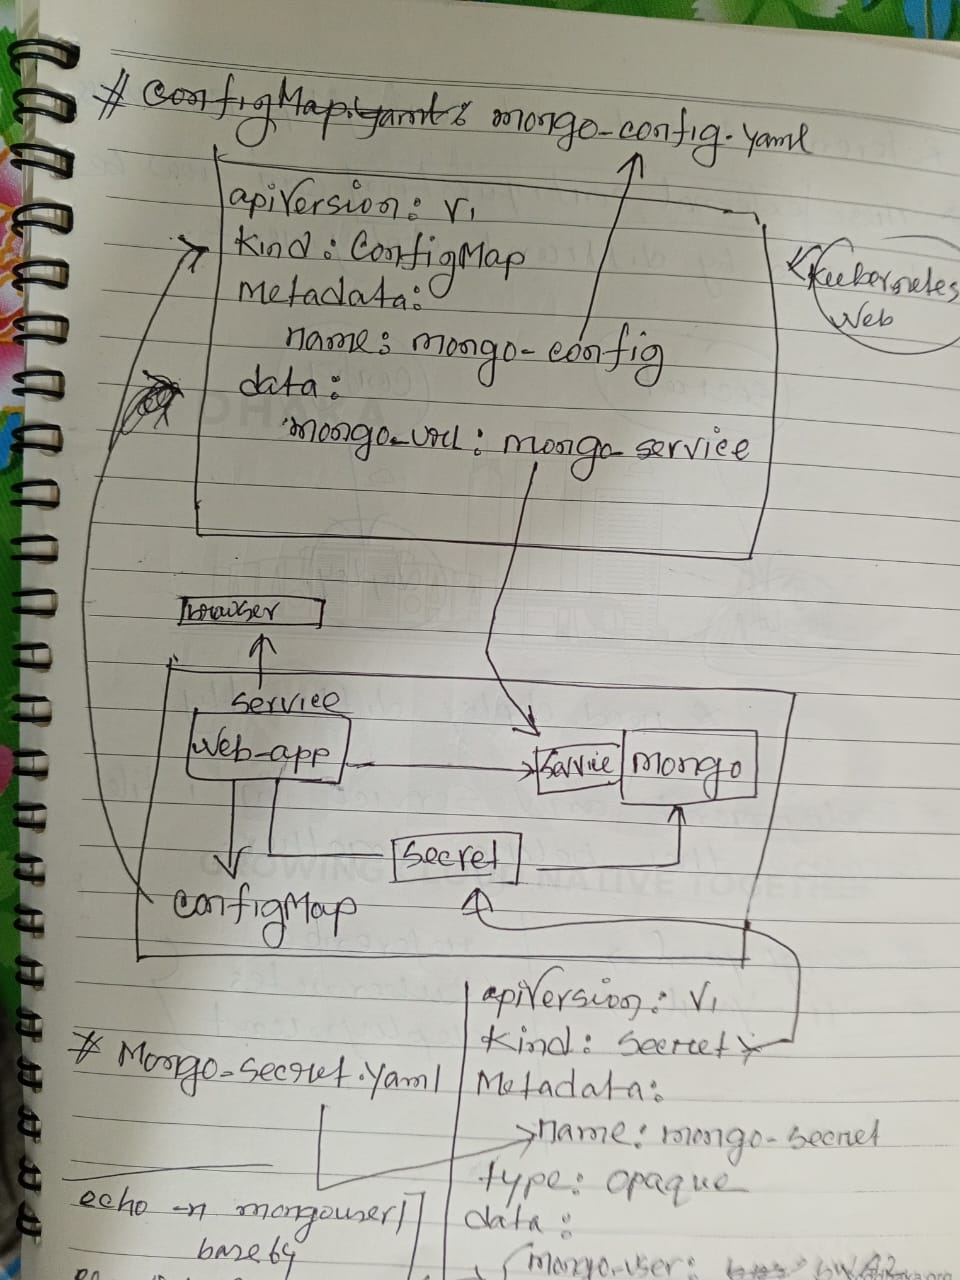 # ConfigMap.yaml: mongo-config.yaml
apiVersion: V1
kind: ConfigMap
Metadata:
name: mongo-config
data:
mongo-url: mongo-service
Kubernetes
Web
browser
service
Web-app
Service
Mongo
Secret
ConfigMap
# Mongo-secret.yaml
echo -n mongouser |
base64
apiVersion: V1
Kind: Secret
Metadata:
name: mongo-secret
type: opaque
data:
mongo-user: